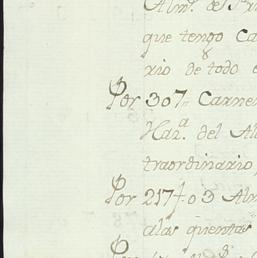 Alm.s de
que tengo Ca
xio de todo
Por 307" Carne
Har.a del Al
traordinario
Por 217 f o 3 Alm
alas quentas
Por